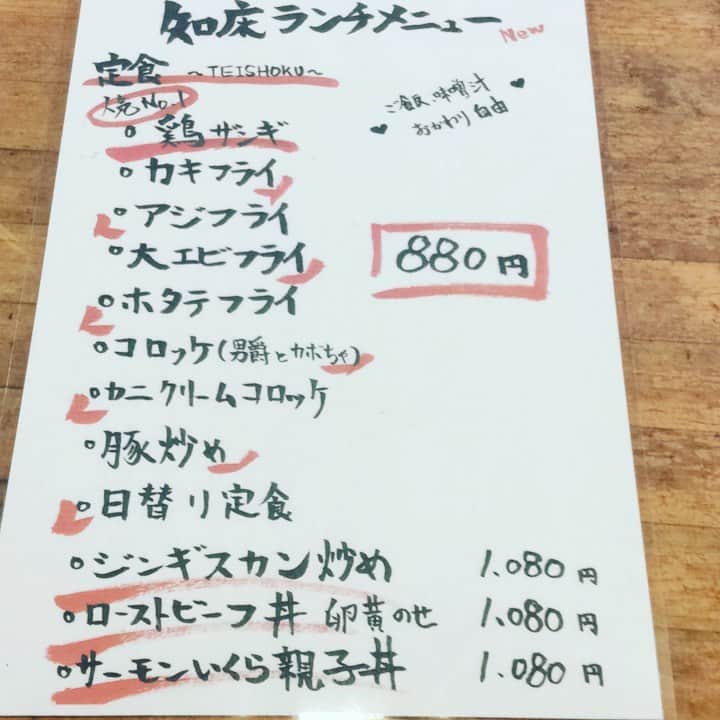 知床ランチメニュー
New
定食 ～TEISHOKU～
No.1
ご飯、味噌汁
おかわり自由
。鶏ザンギ
。カキフライ
。アジフライ
。大エビフライ
880円
。ホタテフライ
。コロッケ(男爵とカボちゃ)
。カニクリームコロッケ
。豚炒め
。日替り定食
。ジンギスカン炒め 1.080円
。ローストビーフ丼 卵黄のせ 1.080円
。サーモンいくら親子丼 1.080円